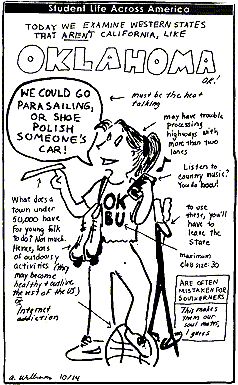 Student Life Across America
TODAY WE EXAMINE WESTERN STATES
THAT AREN'T CALIFORNIA, LIKE
OKLAHOMA
OK!
WE COULD GO
PARASAILING,
OR SHOE
POLISH
SOMEONE'S
CAR!
must be the heat
talking
may have trouble
processing
highways with
more than two
lanes
Listen to
country music?
You do now!
OK
BU
What does a
town under
50,000 have
for young folk
to do? Not much.
Hence, lots
of outdoorsy
activities (they
may become
healthy + outlive
the rest of the US)
or
Internet
addiction
to use
these, you'll
have to
leave the
State
maximum
club size: 30
ARE OFTEN
MISTAKEN FOR
SOUTHERNERS
This makes
them our
soul mates,
I guess
10/14